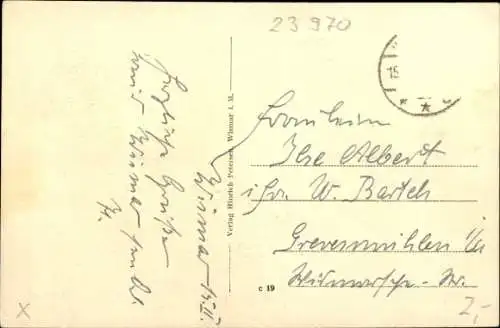 23 970
15
Herzliche Grüße
aus Wismar sendet
H.
Wismar 15.II.
Verlag Hinrich Petersen, Wismar i. M.
c 19
Fräulein
Ilse Albert
i/Fa. W. Bartsch
Grevesmühlen i/M
Wismarsche-Str.
x
2,-